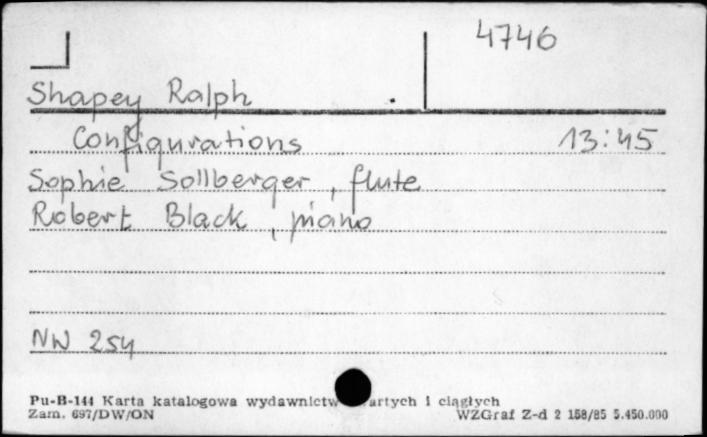 4746
Shapey Ralph
Configurations 13:45
Sophie Sollberger, flute
Robert Black, piano
NW 254
Pu-B-144 Karta katalogowa wydawnictw artych i ciągłych
Zam. 697/DW/ON WZGraf Z-d 2 158/85 5.450.000